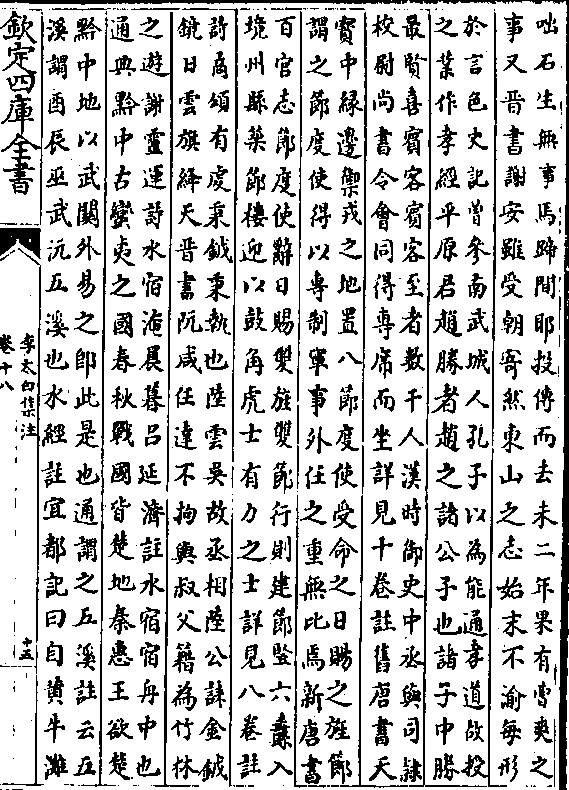 咄石生無事馬蹄間耶投傳而去未二年果有曹爽之
事又晉書謝安雖受朝寄然東山之志始末不渝每形
於言色史記曽參南武城人孔子以為能通孝道故授
之業作孝經平原君趙勝者趙之諸公子也諸子中勝
最賢喜賓客賓客至者數千人漢時御史中丞與司隸
校尉尚書令會同得專席而坐詳見十卷註舊唐書天
寳中縁邊禦戎之地置八節度使受命之日賜之旌節
謂之節度使得以專制軍事外任之重無比焉新唐書
百官志節度使辭日賜雙旌雙節行則建節豎六纛入
境州縣築節樓迎以鼓角虎士有力之士詳見八卷註
詩商頌有虔秉鉞秉執也陸雲吳故丞相陸公誄金鉞
鏡日雲旗絳天晉書阮咸任達不拘與叔父籍為竹林
之遊謝靈運詩水宿淹晨暮吕延濟註水宿宿舟中也
通典黔中古蠻夷之國春秋戰國皆楚地秦惠王欲楚
黔中地以武關外易之即此是也通謂之五溪註云五
溪謂酉辰巫武沅五溪也水經註宜都記曰自黄牛灘
欽定四庫全書
李太白集注
卷十八
十五